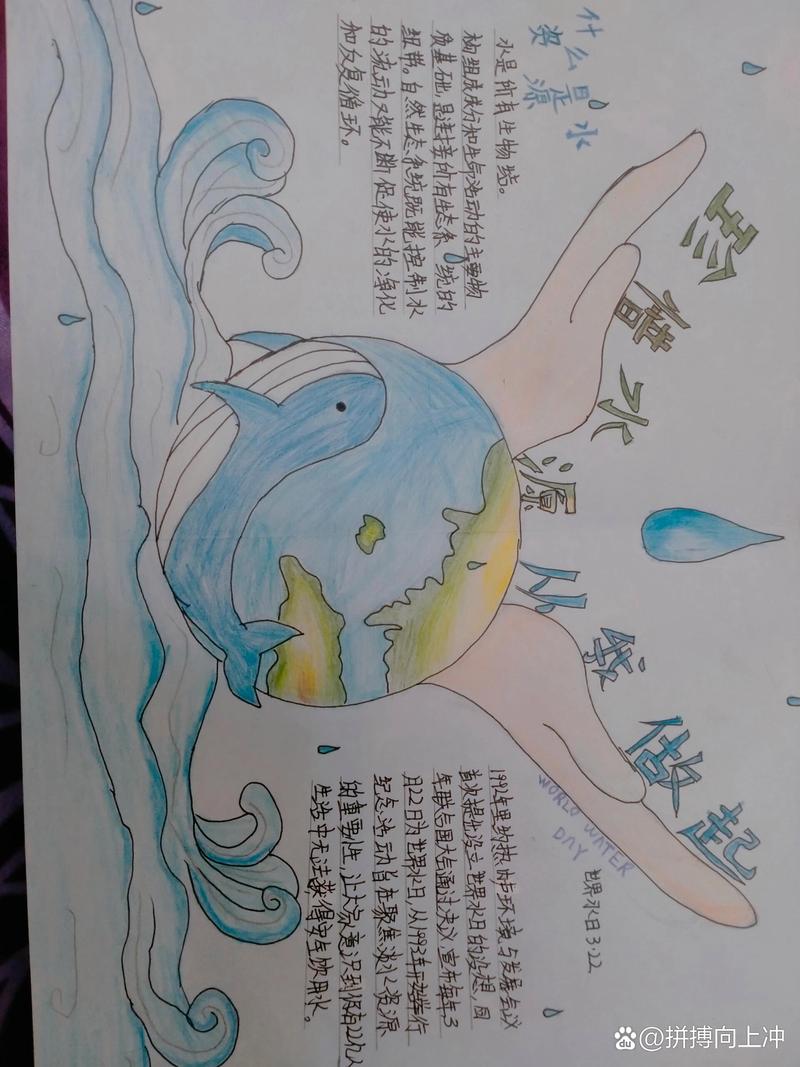 珍惜水源从我做起
什么是水
资源
水是所有生物结。
构组成成份和生命活动的主要物
质基础,是连接所有生态系统的
纽带。自然生态系统既能控制水
的流动又能不断促使水的净化
和反复循环。
世界水日3.22
WORLD WATER
DAY
1992年里约热内卢环境与发展会议
首次提出设立世界水日的设想,同
年联合国大会通过决议宣布每年3
月22日为世界水日,从1993年开始举行
纪念活动旨在聚焦淡水资源
的重要性,让大家意识到仍有22亿人
生活中无法获得安全饮用水。
Bai du @拼搏向上冲